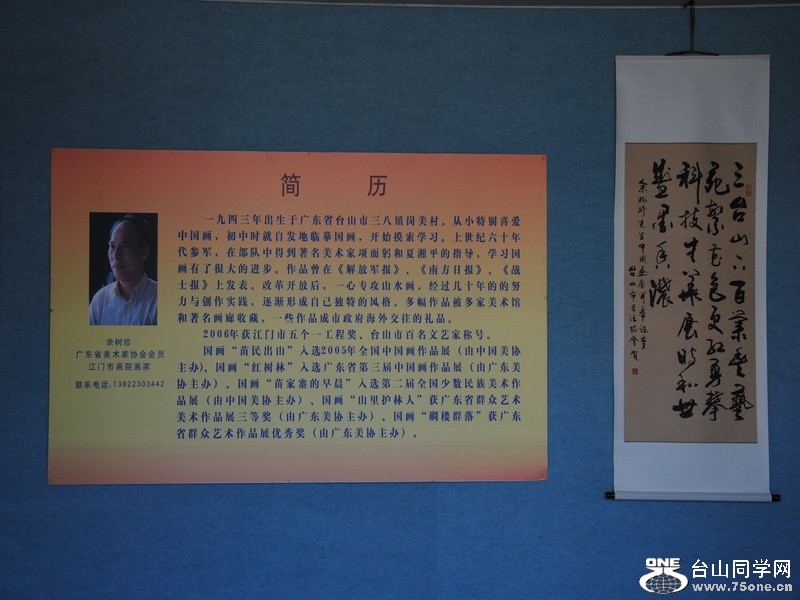 简 历
一九四三年出生于广东省台山市三八镇岗美村。从小特别喜爱
中国画，初中时就自发地临摹国画，开始摸索学习。上世纪六十年
代参军，在部队中得到著名美术家项而躬和夏湘平的指导，学习国
画有了很大的进步。作品曾在《解放军报》、《南方日报》、《战
士报》上发表。改革开放后，一心专攻山水画，经过几十年的的努
力与创作实践，逐渐形成自己独特的风格。多幅作品被多家美术馆
和著名画廊收藏，一些作品成市政府海外交往的礼品。
2006年获江门市五个一工程奖、台山市百名文艺家称号。
国画“苗民出山”入选2005年全国中国画作品展（由中国美协
主办）、国画“红树林”入选广东省第三届中国画作品展（由广东美
协主办）、国画“苗家寨的早晨”入选第二届全国少数民族美术作
品展（由中国美协主办）、国画“山里护林人”获广东省群众艺术
美术作品展三等奖（由广东美协主办）、国画“碉楼群落”获广东
省群众艺术作品展优秀奖（由广东美协主办）。
余树珍
广东省美术家协会会员
江门市画院画家
联系电话:13822303442
三台山下百业兴艺
苑
科技
墨香浓
台山市书法
ONE
台山同学网
www.75one.cn